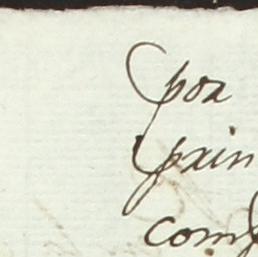 por
prin
com